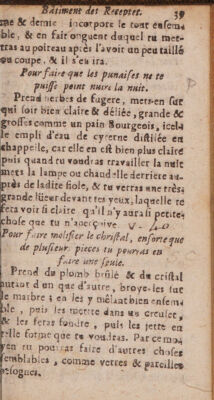 Bâtiment des Receptes. 39
me & demie incorpore le tout ensem
ble, & en fait onguent duquel tu met
tras au poiteau après l'avoir un peu taillé
ou coupe, & il s'en ira.
Pour faire que les punaises ne te
puisse point nuire la nuit.
Prend herbes de fugere, mets-en sur
qui soit bien claire & déliée, grande &
grosses comme un pain Bourgeois, icel
le empli d'eau de cyterne distilée en
chappelle, car elle en est bien plus claire
puis quand tu voudras travailler la nuit
mets la lampe ou chandelle derriere au
près de ladite fiole, & tu verras une très
grande lüeur devant tes yeux, laquelle te
fera voir si claire qu'il n'y aura si petite
chose que tu n'apperçoive
Pour faire molifier le christal, ensorte que
de plusieur pieces tu pourras en
faire une seule.
Prend du plomb brûlé & du cristal
autant d'un que d'autre, broye-les sur
le marbre; en les y mêlant bien ensem
ble, puis les mettre dans un creuset,
& les feras fondre, puis les jette en
telle forme que tu voudras. Par ce mo
yen tu pourras faire d'autres choses
semblables, comme verres & pareilles